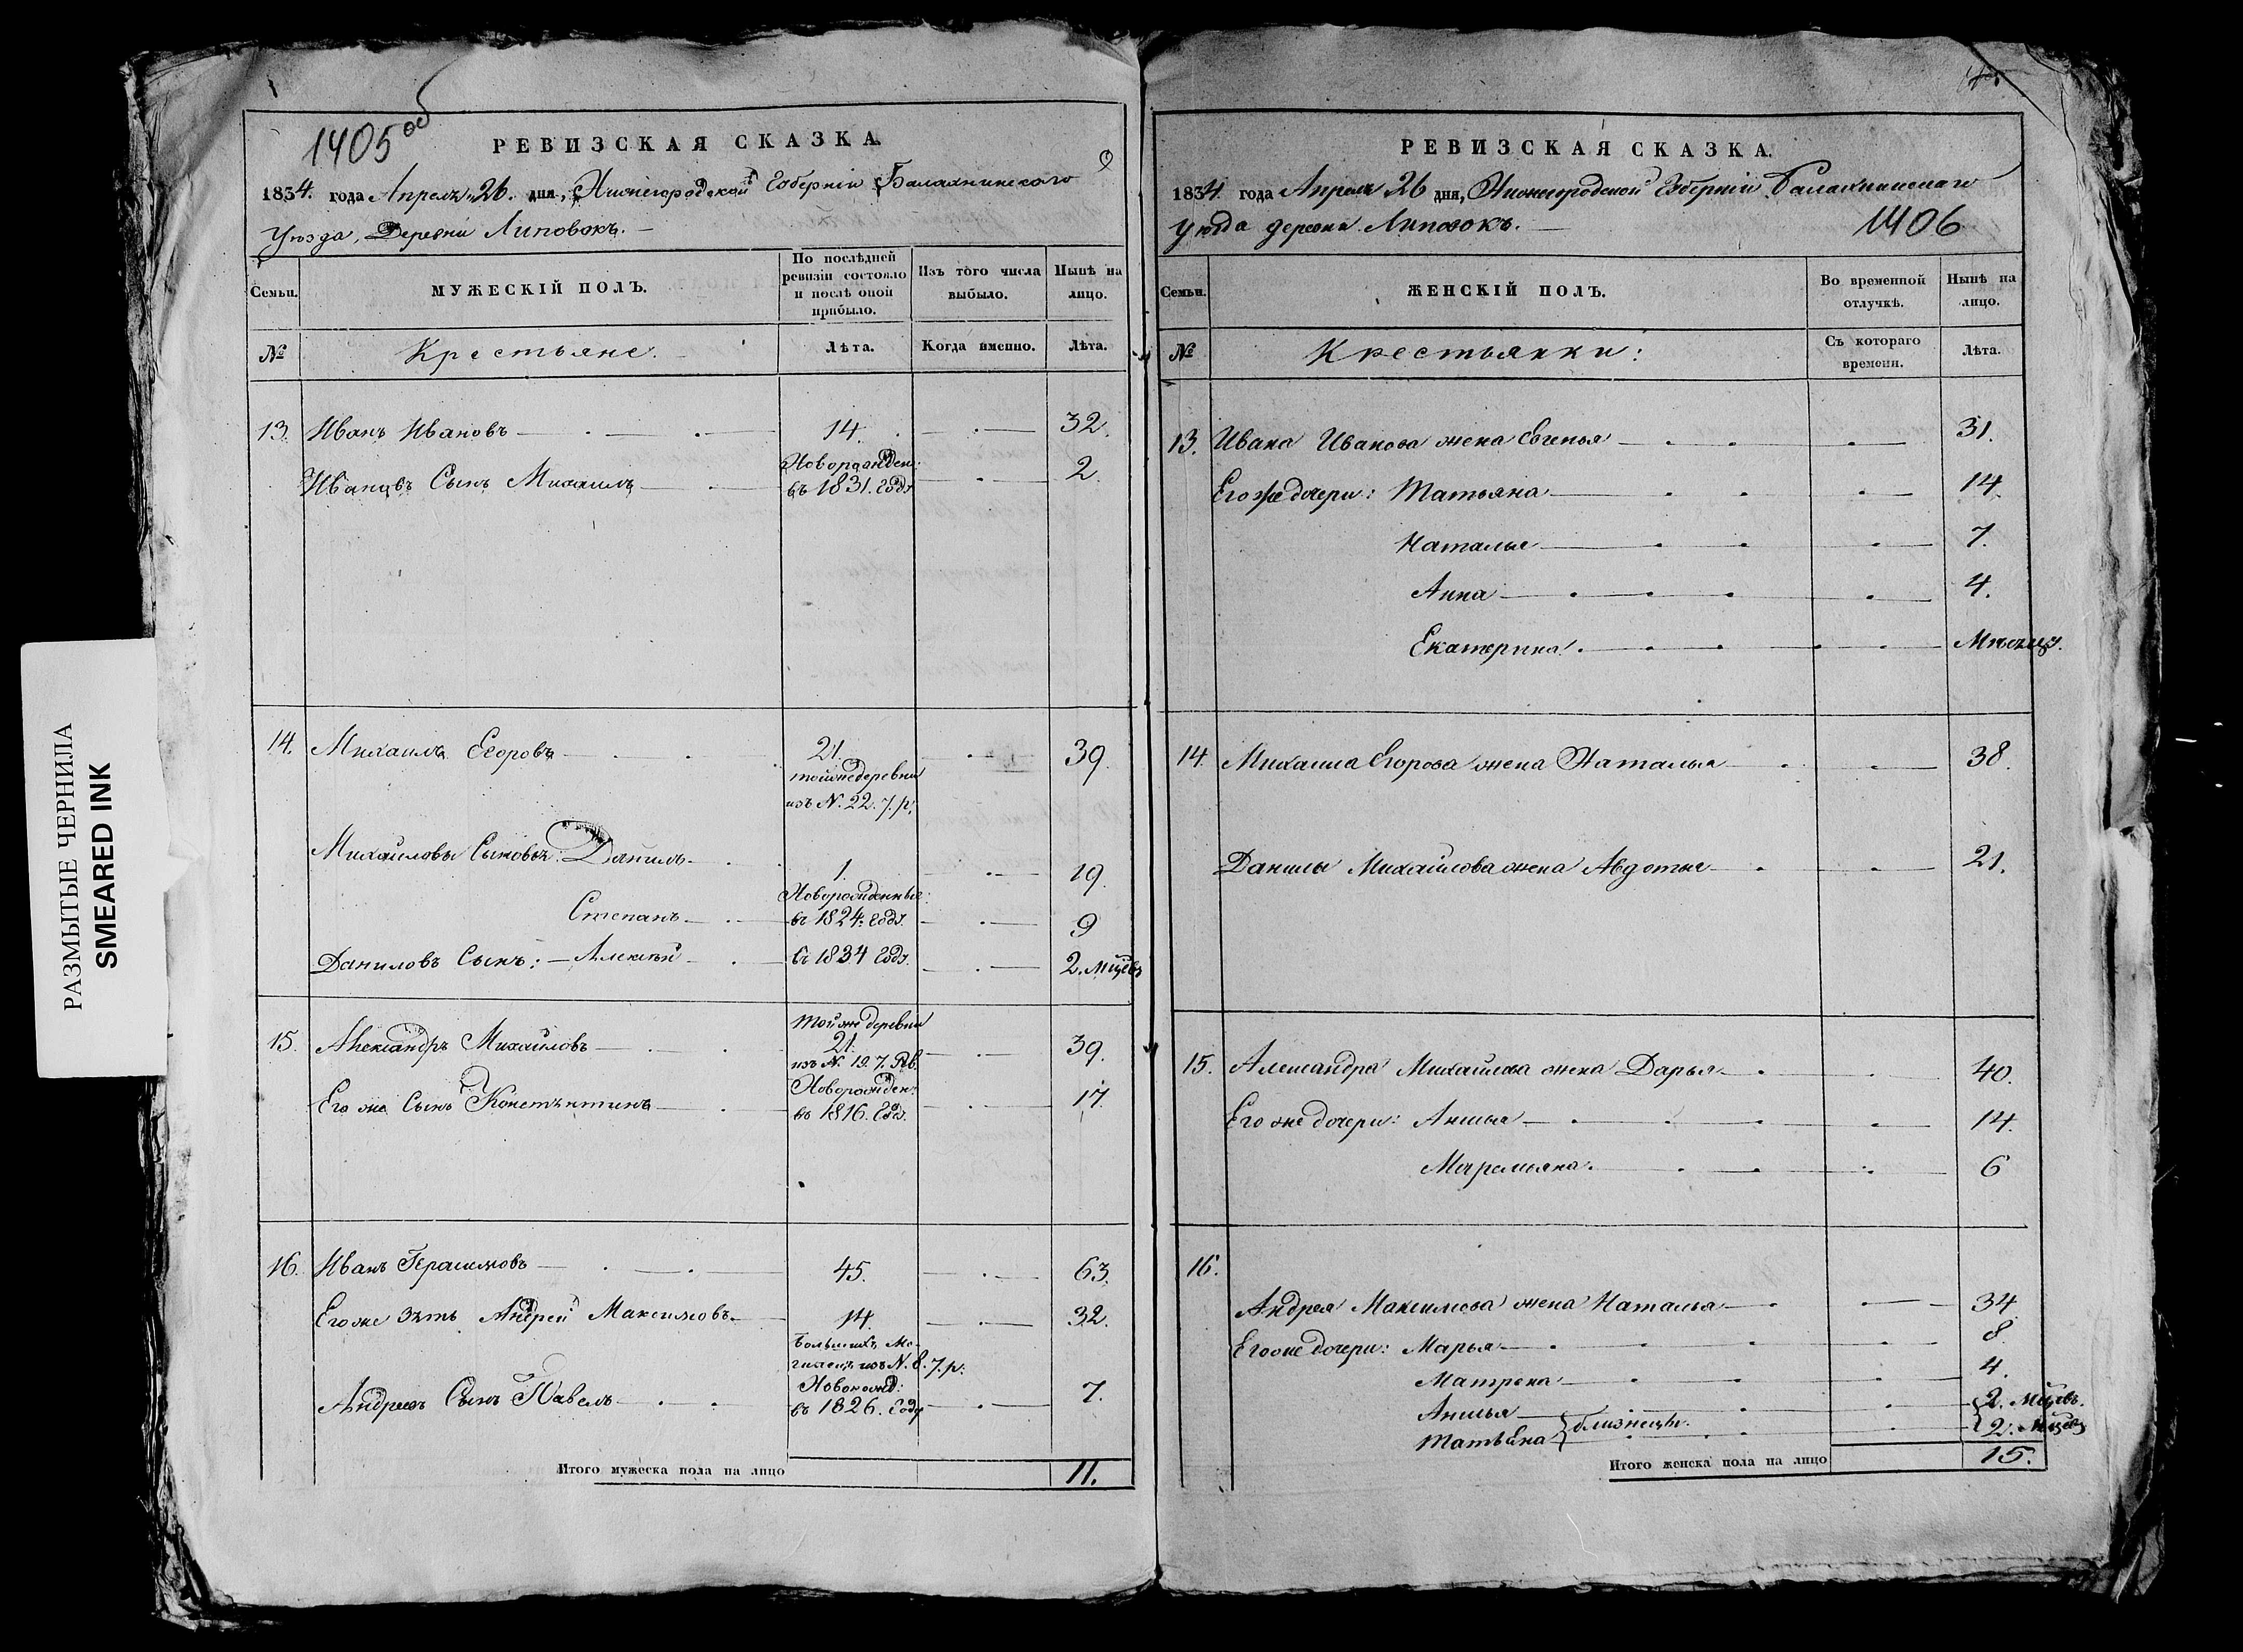 РАЗМЫТЫЕ ЧЕРНИЛА
SMEARED INK
1405 об
РЕВИЗСКАЯ СКАЗКА.
1834. года Апрель 26. дня, Нижегородской Губернiи Балахнинскаго
Уѣзда, Деревни Липовокъ.
Семьи.
МУЖЕСКIЙ ПОЛЪ.
По послѣдней ревизiи состояло и послѣ оной прибыло.
Изъ того числа выбыло.
Нынѣ на лицо.
№
Крестьяне.
Лѣта.
Когда именно.
Лѣта.
13. Иванъ Ивановъ 14. 32.
Новорожден:
Ивановъ Сынъ Михаилъ въ 1831. Году 2.
14. Михаилъ Егоровъ 21. 39.
тойже деревни
изъ N. 22. 7. р.
Михайловы Сыновья: Данилъ 1. 19.
Новорожденные:
Степанъ въ 1824. Году. 9
Даниловъ Сынъ: Алексѣй въ 1834 Году. 2. мцѣвъ
тойже деревни
15. Александръ Михайловъ 21. 39.
изъ N. 19. 7. Рев.
Новорожден:
Его же Сынъ Константинъ въ 1816. Году. 17.
16. Иванъ Герасимовъ 45. 63.
Его же зять Андрей Максимовъ 14. 32.
Большихъ Мо-
изъ N. 8. 7. р.
Новорожд:
Андреевъ Сынъ Павелъ въ 1826. Году 7.
Итого мужеска пола на лицо 11.
РЕВИЗСКАЯ СКАЗКА.
1834. года Апреля 26 дня, Нижегородской Губернiи Балахнинскаго
Уѣзда деревни Липовокъ.
1406
Семьи.
ЖЕНСКIЙ ПОЛЪ.
Во временной отлучкѣ.
Нынѣ на лицо.
№
Крестьянки:
Съ котораго времени.
Лѣта.
13. Ивана Иванова жена Евгенья 31.
Его же дочери: Татьяна 14.
Наталья 7.
Анна 4.
Екатерина. Мѣсяцу.
14. Михаила Егорова жена Наталья 38.
Данилы Михайлова жена Авдотья 21.
15. Александра Михайлова жена Дарья 40.
Его же дочери: Анисья 14.
Маремьяна. 6
16.
Андрея Максимова жена Наталья 34
Его же дочери: Марья 8.
Матрена 4.
Анисья 2. Мцѣвъ.
близнецы.
Татьяна 2. Мцѣвъ
Итого женска пола на лицо 15.